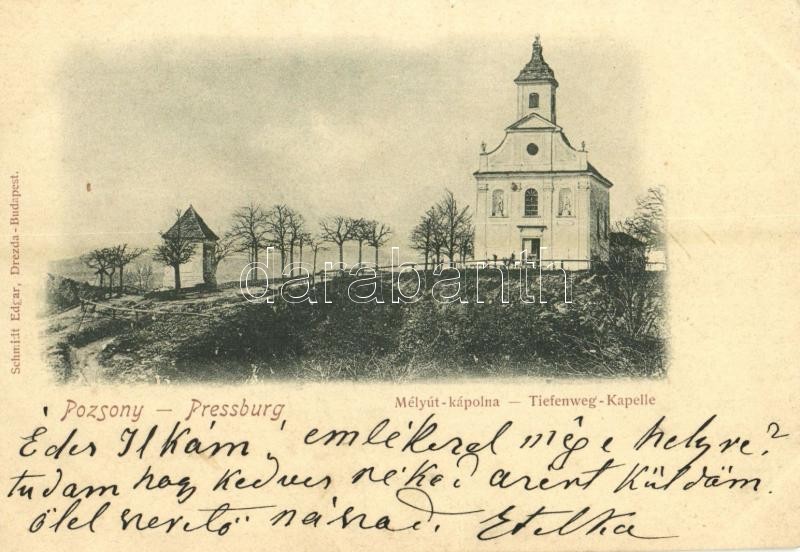 Schmidt Edgar, Drezda-Budapest.
darabanth
Pozsony — Pressburg
Mélyút-kápolna — Tiefenweg-Kapelle
Édes Ilkám! emlékezel még e helyre?
tudam hogy kedves néked azért Küldöm.
ölel szerető nászad. Etelka